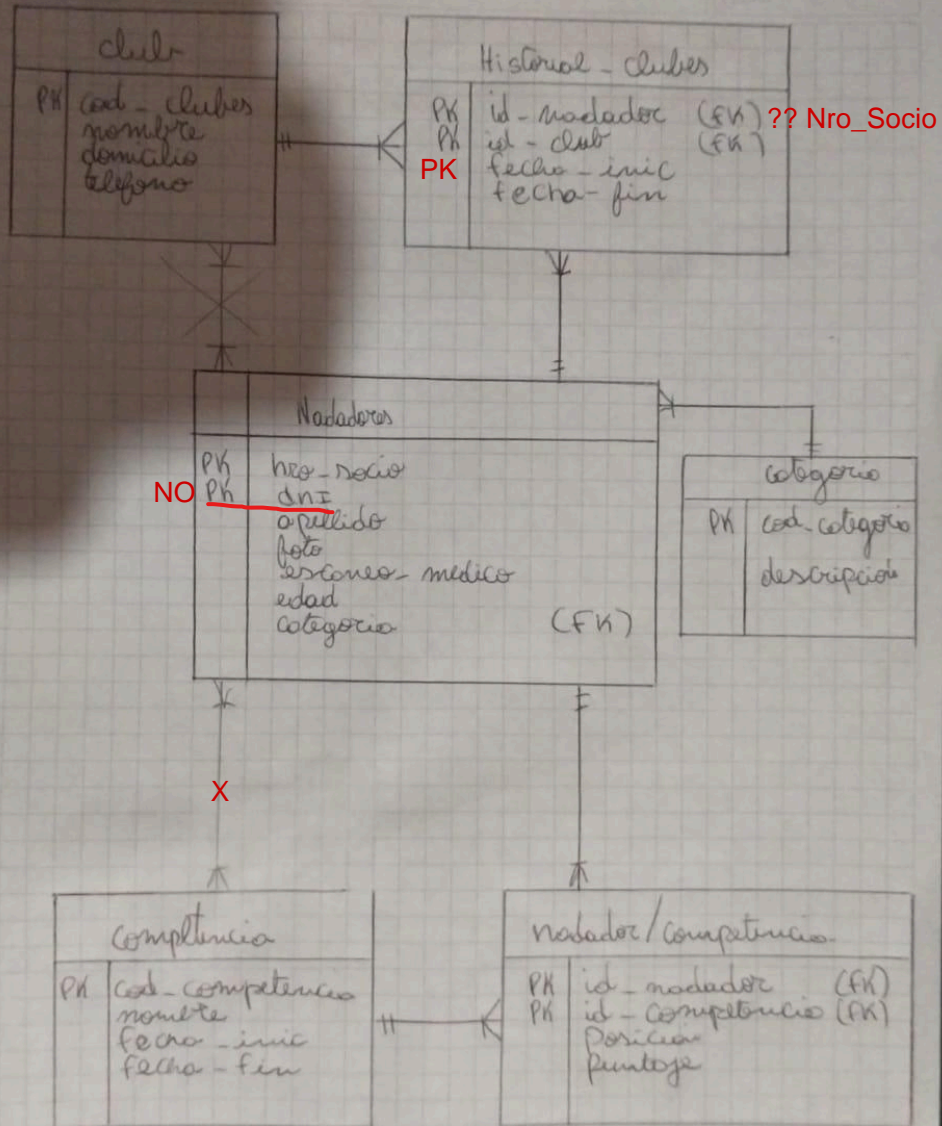 club
PK cod_clubes
nombre
domicilio
telefono
Historial_clubes
PK id_nadador (FK) ?? Nro_Socio
PK id_club (FK)
PK fecha_inic
fecha_fin
Nadadores
PK nro_socio
NO PK dnI
apellido
foto
escaneo_medico
edad
categoria (FK)
categoria
PK cod_categoria
descripción
X
Competencia
PK cod_competencia
nombre
fecha_inic
fecha_fin
nadador/competencia
PK id_nadador (FK)
PK id_competencia (FK)
Posicion
puntaje